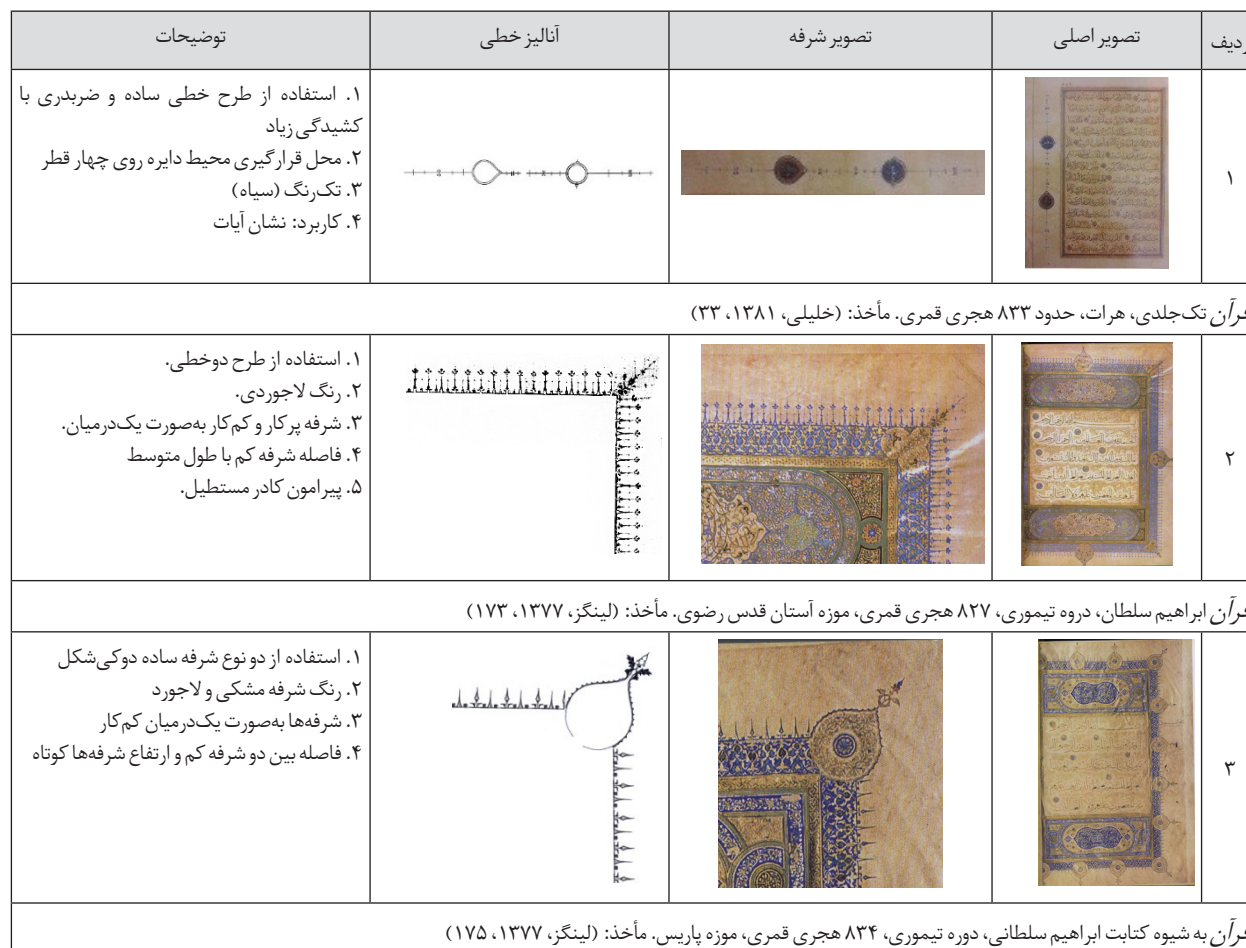 ردیف تصویر اصلی تصویر شرفه آنالیز خطی توضیحات
۱
۱. استفاده از طرح خطی ساده و ضربدری با
کشیدگی زیاد
۲. محل قرارگیری محیط دایره روی چهار قطر
۳. تک‌رنگ (سیاه)
۴. کاربرد: نشان آیات
قرآن تک‌جلدی، هرات، حدود ۸۳۳ هجری قمری. مأخذ: (خلیلی، ۱۳۸۱، ۳۳)
۲
۱. استفاده از طرح دوخطی.
۲. رنگ لاجوردی.
۳. شرفه پرکار و کم‌کار به‌صورت یک‌درمیان.
۴. فاصله شرفه کم با طول متوسط
۵. پیرامون کادر مستطیل.
قرآن ابراهیم سلطان، دروه تیموری، ۸۲۷ هجری قمری، موزه آستان قدس رضوی. مأخذ: (لینگز، ۱۳۷۷، ۱۷۳)
۳
۱. استفاده از دو نوع شرفه ساده دوکی‌شکل
۲. رنگ شرفه مشکی و لاجورد
۳. شرفه‌ها به‌صورت یک‌درمیان کم‌کار
۴. فاصله بین دو شرفه کم و ارتفاع شرفه‌ها کوتاه
قرآن به شیوه کتابت ابراهیم سلطانی، دوره تیموری، ۸۳۴ هجری قمری، موزه پاریس. مأخذ: (لینگز، ۱۳۷۷، ۱۷۵)